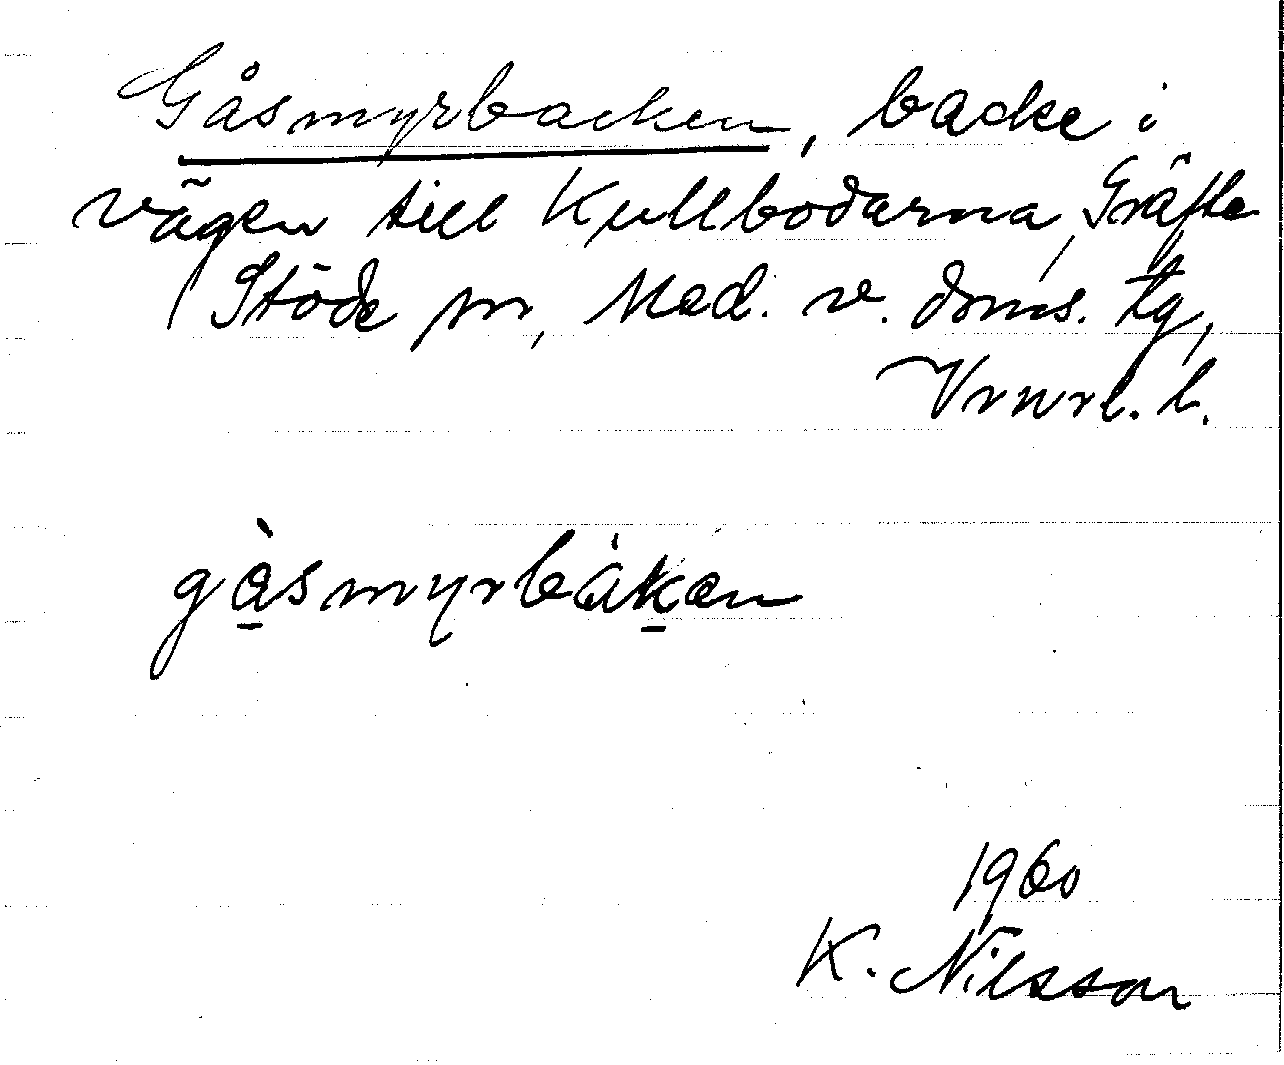 Gåsmyrbacken, backe i
vägen till Kullbodarna, Gräfte
Stöde sn, Med. v. doms. tg,
Vrnrl. l.
gåsmyrbàkan
1960
K. Nilsson